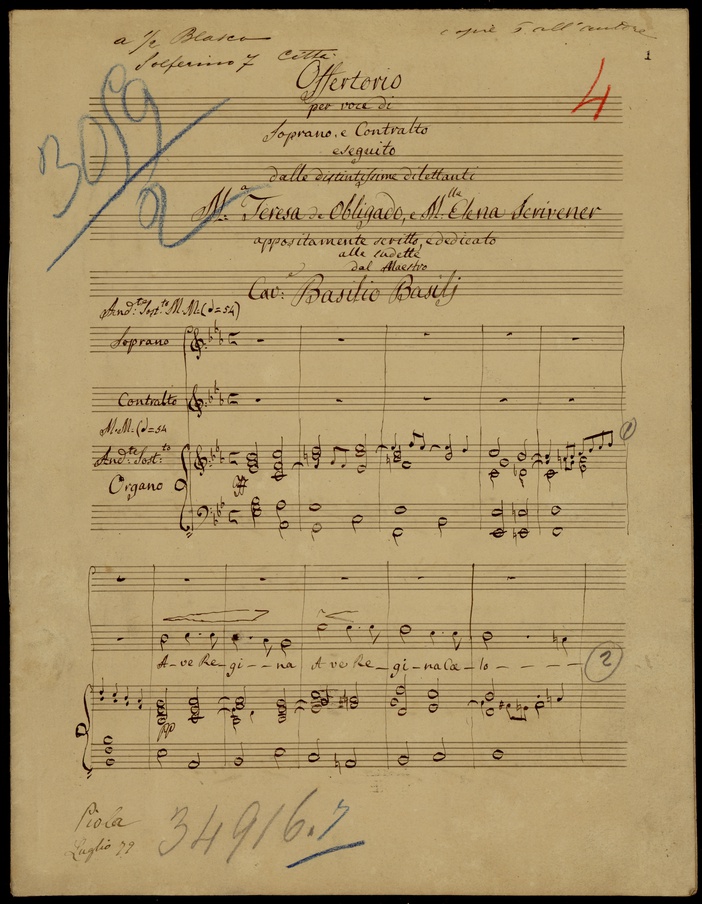 a 1/2 Blasco
copie 5 all'autore
Solferino 7 Città
1
Offertorio
4
per voce di
3019
2
Soprano, e Contralto
eseguito
dalle distintissime dilettanti
M.ª Teresa de Obligado, e M.lla Elena Scrivener
appositamente scritto, e dedicato
alle sudette
dal Maestro
Cav: Basilio Basilj
And.te Sost.to M.M. (𝅗𝅥=54)
Soprano
Contralto
M.M. (𝅗𝅥=54
1
And.te Sost.to
Organo
ff
A-ve Re-gi--na A ve Re-gi-na Cæ-lo----
2
pp
Piola
Luglio 79
34916.7